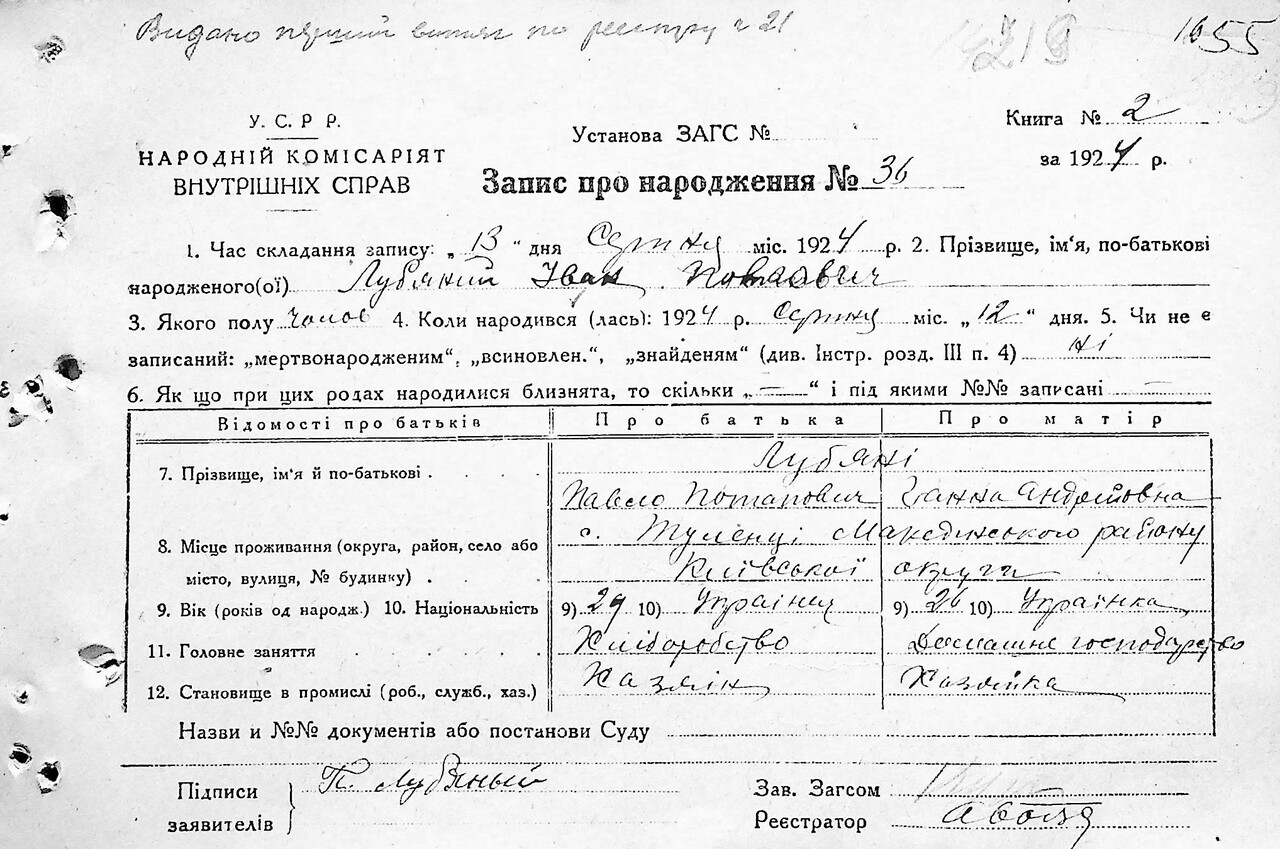 Видано перший витяг по реєстру № 21
1655
У. С. Р Р.
НАРОДНІЙ КОМІСАРІЯТ
ВНУТРІШНІХ СПРАВ
Установа ЗАГС №
Книга № 2
за 1924 р.
Запис про народження № 36
1. Час складання запису: „ 13 “ дня Серпня міс. 1924 р. 2. Прізвище, ім'я, по-батькові
народженого(ої) Лубяний Іван Павлович
3. Якого полу Чолов 4. Коли народився (лась): 1924 р. Серпня міс. „ 12 “ дня. 5. Чи не є
записаний: „мертвонародженим“, „всиновлен.“, „знайденям“ (див. Інстр. розд. III п. 4) ні
6. Як що при цих родах народилися близнята, то скільки „ — “ і під якими №№ записані —
Відомості про батьків Про батька Про матір
7. Прізвище, ім'я й по-батькові . . . . Лубяні
Павло Потапович Ганна Андреївна
8. Місце проживання (округа, район, село або
місто, вулиця, № будинку) . . .
с. Туленці Макединського району
Київської округи
9. Вік (років од народж.) 10. Національність 9) 29 10) Українец 9) 26 10) Українка
11. Головне заняття . . . . Хліборобство Домашнє господарство
12. Становище в промислі (роб., служб., хаз.) Хазяїн Хазяйка
Назви и №№ документів або постанови Суду
Підписи
заявителів
П. Лубяный
Зав. Загсом
Реєстратор